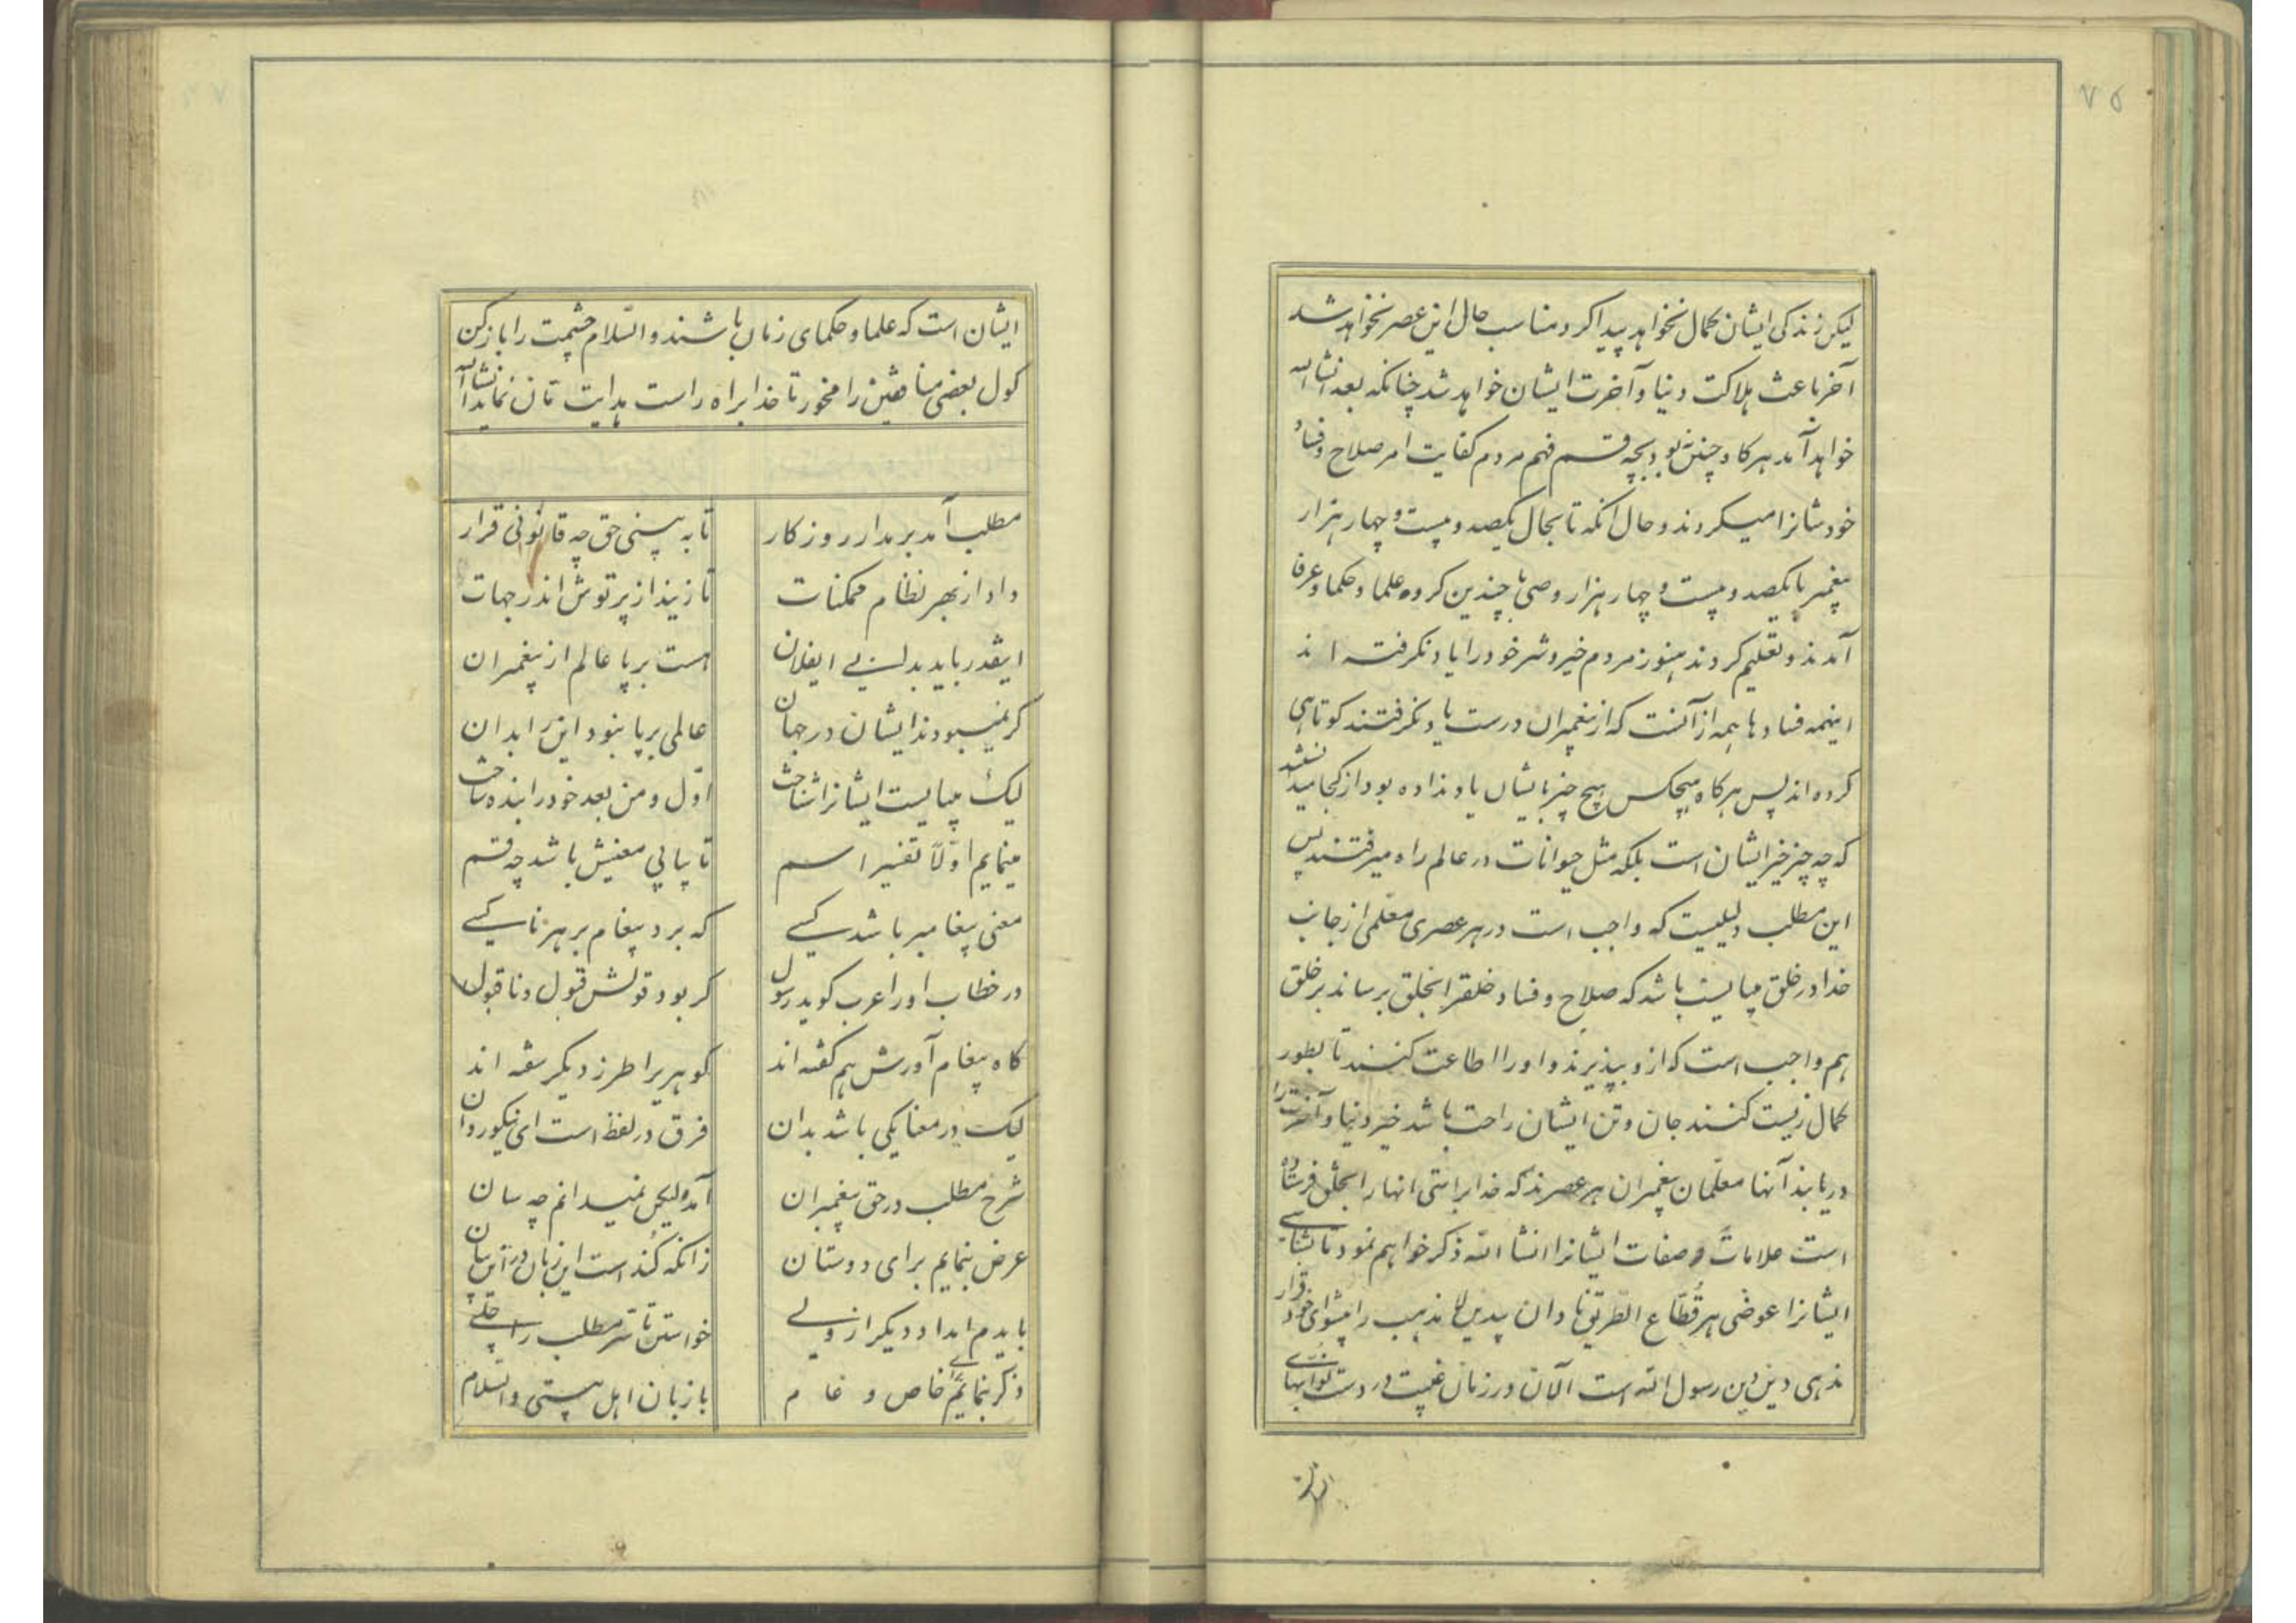 ۷۵
لیکن زندکی ایشان کمال نخواهد پیدا کرد مناسب حال این عصر نخواهد شد
آخر باعث هلاکت دنیا و آخرت ایشان خواهد شد چنانکه بعد انشاالله
خواهد آمد هرکاه چنین نبود بچه قسم فهم مردم کفایت امر صلاح و فساد
خودشانرا میکردند و حال آنکه تا بحال یکصد و بیست و چهار هزار
پیغمبر با یکصد و بیست و چهار هزار وصی با چندین کروه علما و حکما و عرفا
آمدند و تعلیم کردند هنوز مردم خیر و شر خود را یاد نکرفته اند
اینهمه فسادها همه از آنست که از پیغمبران درست یاد نکرفتند کوتاهی
کرده اند پس هرکاه هیچکس هیچ چیز بایشان یاد نداده بود از کجا میدانستند
که چه چیز خیر ایشان است بلکه مثل حیوانات در عالم راه میرفتند پس
این مطلب دلیلیست که واجب است در هر عصری معلمی از جانب
خدا در خلق میبایست باشد که صلاح و فساد خلقرا بخلق برساند بر خلق
هم واجب است که از و بپذیرند و او را اطاعت کنند تا بطور
کمال زیست کنند جان و تن ایشان راحت باشد خیر دنیا و آخرت را
دریابند آنها معلّمان پیغمبران هر عصرند که خدا براستی انها را بخلق فرستاده
است علامات و صفات ایشانرا انشا الله ذکر خواهم نمود تا بشناسی
ایشانرا عوضی هر قُطّاع الطّریق نادان بیدین لا مذهب را پیشوای خود قرار
ندهی دین دین رسول الله است الآن در زمان غیبت در دست نوّابهای
ایشان است که علما و حکمای زمان باشند والسّلام چشمت را باز کن
کول بعضی منافقین را مخور تا خدا براه راست هدایت تان نماید انشاالله
مطلب آمد بر مدار روزکار    تا به بینی حق چه قانونی قرار
داد از بهر نظام ممکنات    تا زیند از پرتوش اندر جهات
اینقدر باید بدانی ایفلان    هست بر پا عالم از پیغمبران
کر نمیبودند ایشان در جهان    عالمی بر پا نبود این را بدان
لیک میبایست ایشانرا شناخت    اوّل و من بعد خود را بنده ساخت
مینمایم اوّلا تفسیر اسم    تا بیابی معنیش باشد چه قسم
معنی پیغامبر باشد کسی    که برد پیغام بر هر ناکسی
در خطاب او را عرب کوید رسول    کر بود قولش قبول و ناقبول
کاه پیغام آورش هم کفته اند    کوهریرا طرز دیکر سفته اند
لیک در معنا یکی باشد بدان    فرق در لفظ است ای نیکو روان
شرح مطلب در حق پیغمبران    آمده لیکن نمیدانم چه سان
عرض بنمایم برای دوستان    زانکه کُند است این زبان در این بیان
بایدم امداد دیکر از ولی    خواستن تا سر مطلب را جلی
ذکر بنمایم خاص و عام    با زبان اهل هستی والسّلام